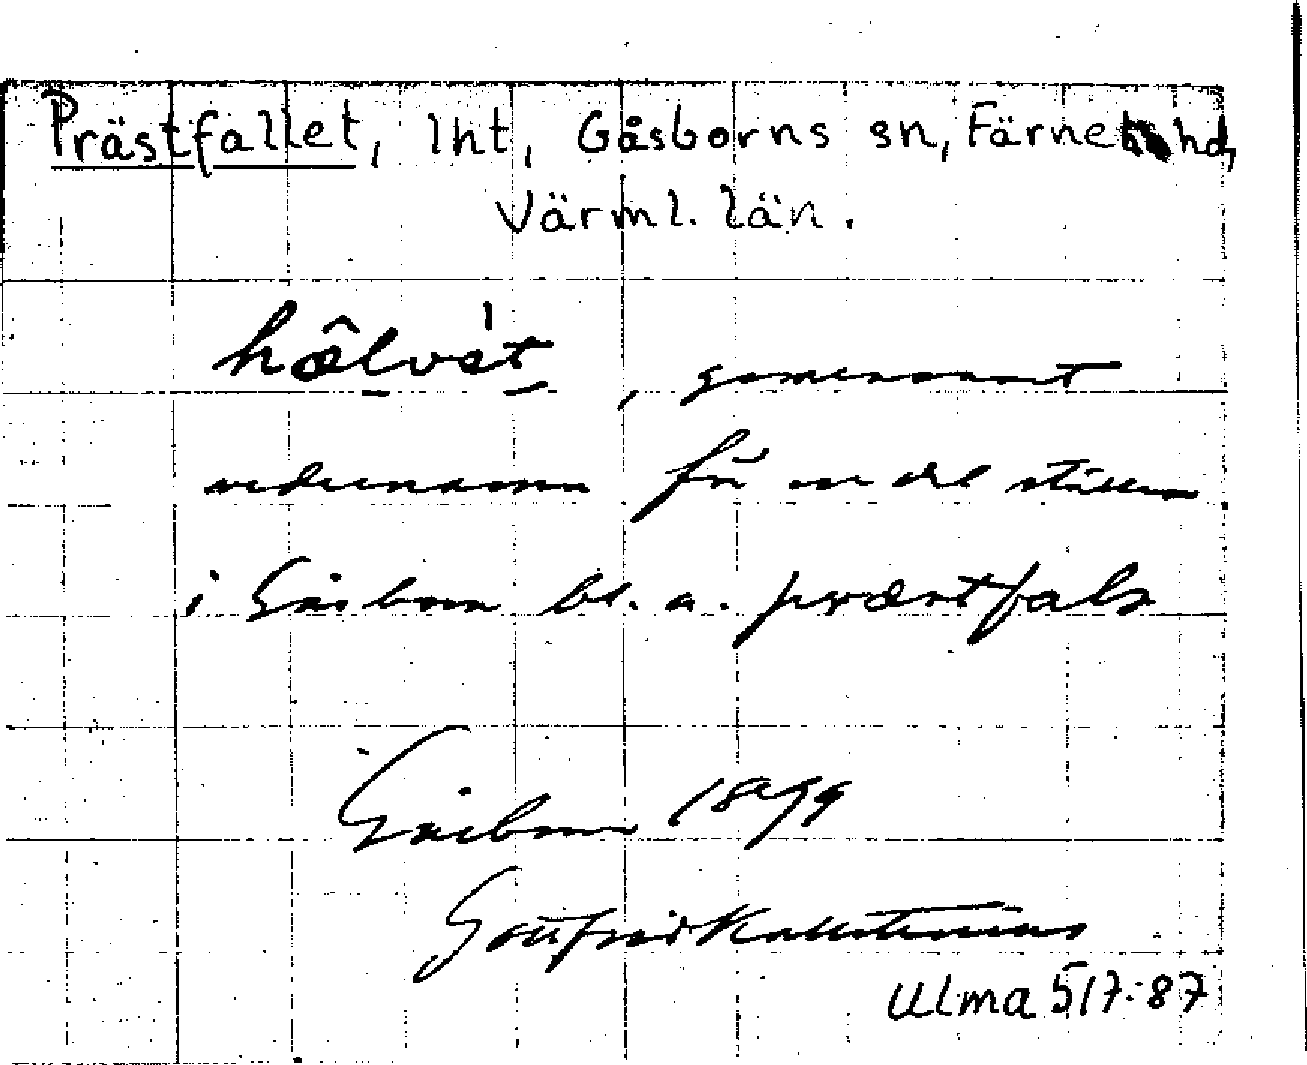 Prästfallet, lht, Gåsborns sn, Färnebo hd,
Värml. län.
hœ̂lvét, gemensamt
vedernamn för en del ställen
i Gåsborn bl. a. præstfalə
Gåsborn 1899
Gottfrid Kallstenius
Ulma 517:87